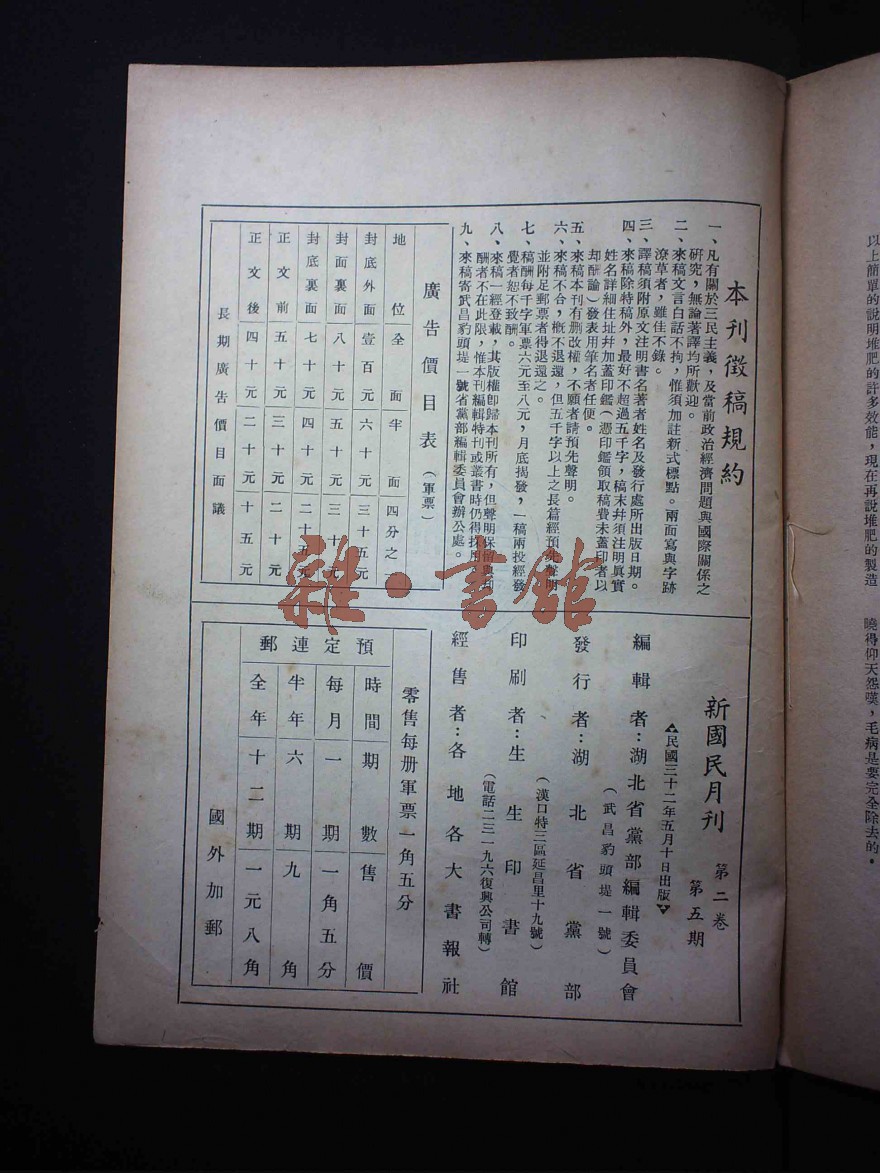 本刊徵稿規約
一、凡有關於三民主義，及當前政治經濟問題與國際關係之
研究，無論著譯均所歡迎。
二、來稿文言白話不拘，惟須加註新式標點。兩面寫與字跡
潦草者，雖佳不錄。
三、譯稿須附原文注明書名著者姓名及發行處所出版日期。
四、來稿除特稿外，最好不超過五千字，稿末幷須注明眞實
姓名詳細住址幷加蓋印鑑（憑印鑑領取稿費未蓋印者以
却酬論）發表用筆名者任便。
五、來稿本刊有删改權，不願者請預先聲明。
六、來稿不合，槪不退還，但五千字以上之長篇經預先聲明
並附足郵票者得退還之。
七、稿酬每千字軍票六元至八元，月底揭發，一稿兩投經發
覺者恕不致酬。
八、來稿一經登載，其版權卽歸本刊所有，但聲明保留
酬者不在此限，惟本刊編輯特刊或叢書時仍得採用
九、來稿寄武昌豹頭堤一號省黨部編輯委員會辦公處。
廣告價目表（軍票）
地位 全面 半面 四分之
封底外面 壹百元 六十元 三十五元
封面裏面 八十元 五十元 三十元
封底裏面 七十元 四十元 二十五元
正文前 五十元 三十元 二十元
正文後 四十元 二十元 十五元
長期廣告價目面議
新國民月刊 第二卷 第五期
民國三十二年五月十日出版
編輯者：湖北省黨部編輯委員會
（武昌豹頭堤一號）
發行者：湖北省黨部
（漢口特三區延昌里十九號）
印刷者：生生印書館
（電話二三一九六復興公司轉）
經售者：各地各大書報社
零售每册軍票一角五分
預定連郵
時間 期數 售價
每月 一期 一角五分
半年 六期 九角
全年 十二期 一元八角
國外加郵
以上簡單的說明堆肥的許多效能，現在再說堆肥的製造
曉得仰天怨嘆，毛病是要完全除去的。
雜·書館